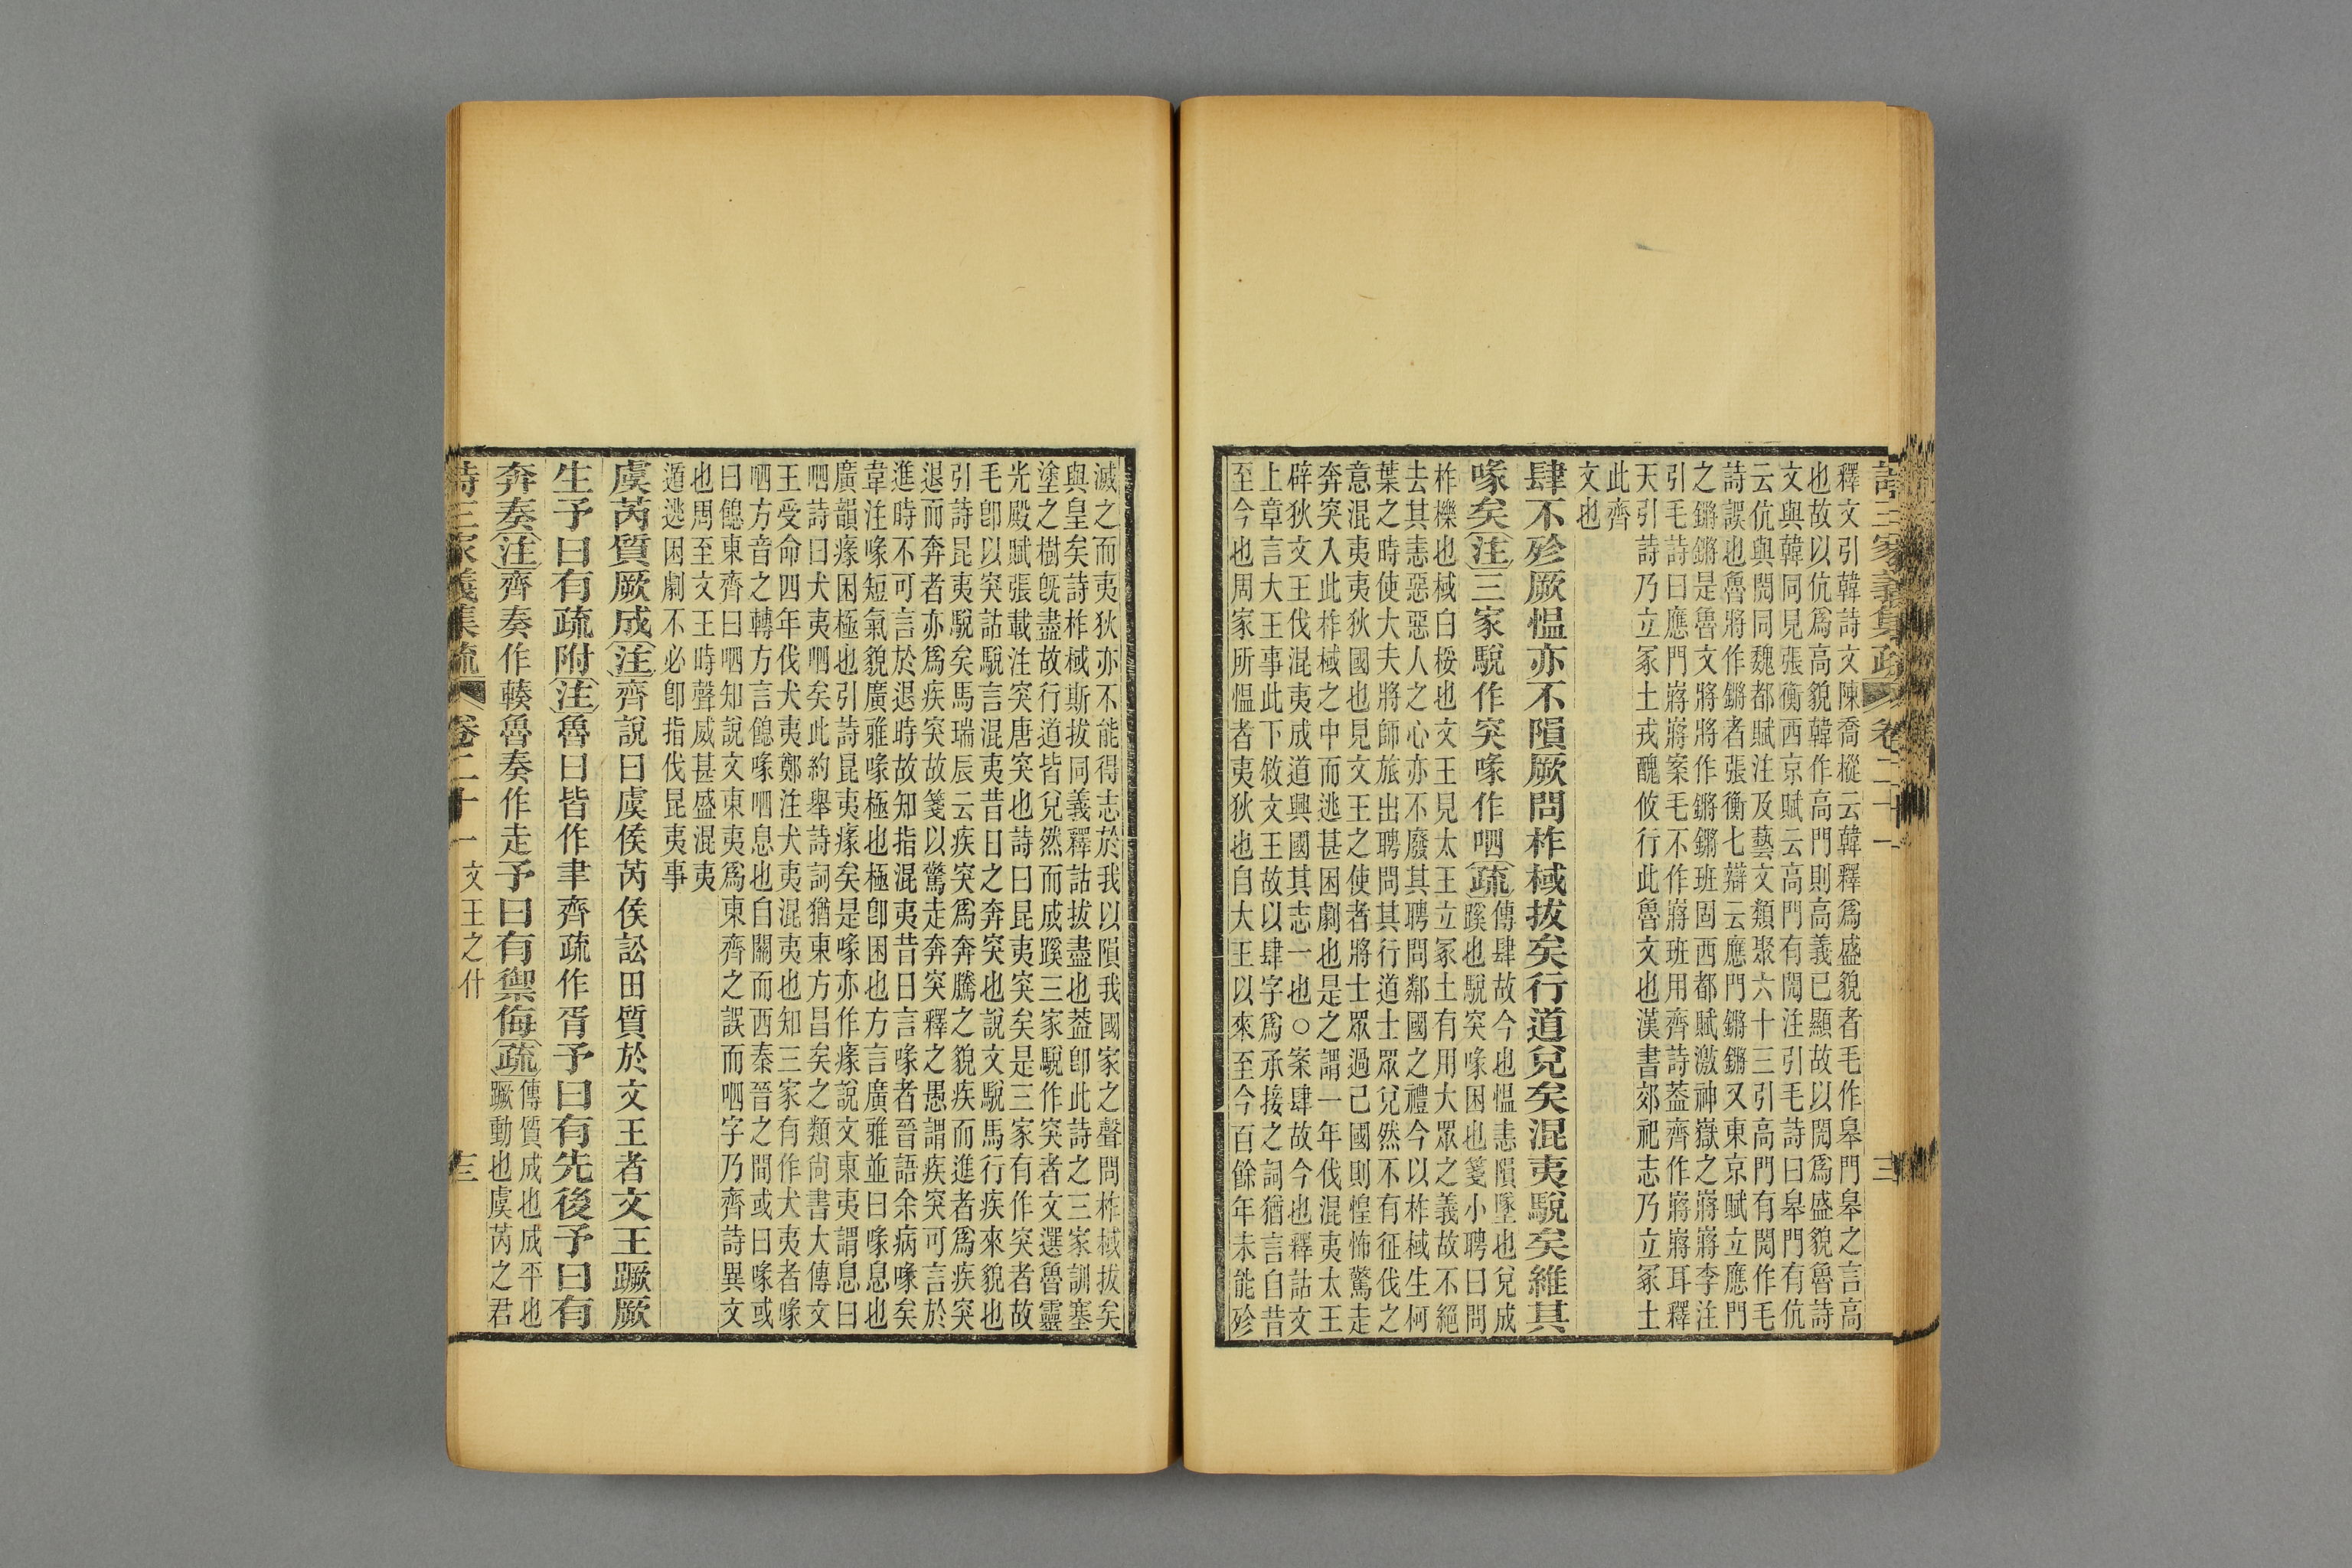 詩三家義集疏 卷二十一 三
釋文引韓詩文陳喬樅云韓釋爲盛貌者毛作皋門皋之言高
也故以伉爲高貌韓作高門則高義已顯故以閌爲盛貌魯詩
文與韓同見張衡西京賦云高門有閌注引毛詩曰皋門有伉
云伉與閌同魏都賦注及藝文類聚六十三引高門有閌作毛
詩誤也魯將作鏘者張衡七辯云應門鏘鏘又東京賦立應門
之鏘鏘是魯文將將作鏘鏘班固西都賦激神嶽之嶈嶈李注
引毛詩曰應門嶈嶈案毛不作嶈班用齊詩葢齊作嶈嶈耳釋
天引詩乃立冢土戎醜攸行此魯文也漢書郊祀志乃立冢土
此齊
文也
肆不殄厥慍亦不隕厥問柞棫拔矣行道兌矣混夷駾矣維其
喙矣注三家駾作突喙作呬疏傳肆故今也慍恚隕墜也兌成
蹊也駾突喙困也箋小聘曰問
柞櫟也棫白桵也文王見太王立冢土有用大眾之義故不絕
去其恚惡惡人之心亦不廢其聘問鄰國之禮今以柞棫生柯
葉之時使大夫將師旅出聘問其行道士眾兌然不有征伐之
意混夷夷狄國也見文王之使者將士眾過己國則惶怖驚走
奔突入此柞棫之中而逃甚困劇也是之謂一年伐混夷太王
辟狄文王伐混夷成道興國其志一也○案肆故今也釋詁文
上章言大王事此下敘文王故以肆字爲承接之詞猶言自昔
至今也周家所慍者夷狄也自大王以來至今百餘年未能殄
滅之而夷狄亦不能得志於我以隕我國家之聲問柞棫拔矣
與皇矣詩柞棫斯拔同義釋詁拔盡也葢卽此詩之三家訓塞
塗之樹旣盡故行道皆兌然而成蹊三家駾作突者文選魯靈
光殿賦張載注突唐突也詩曰昆夷突矣是三家有作突者故
毛卽以突詁駾言混夷昔日之奔突也說文駾馬行疾來貌也
引詩昆夷駾矣馬瑞辰云疾突爲奔騰之貌疾而進者爲疾突
退而奔者亦爲疾突故箋以驚走奔突釋之愚謂疾突可言於
進時不可言於退時故知指混夷昔日言喙者晉語余病喙矣
韋注喙短氣貌廣雅喙極也極卽困也方言廣雅並曰喙息也
廣韻瘃困極也引詩昆夷瘃矣是喙亦作瘃說文東夷謂息曰
呬詩曰犬夷呬矣此約舉詩詞猶東方昌矣之類尙書大傳文
王受命四年伐犬夷鄭注犬夷混夷也知三家有作犬夷者喙
呬方音之轉方言餽喙呬息也自關而西秦晉之間或曰喙或
曰餽東齊曰呬知說文東夷爲東齊之誤而呬字乃齊詩異文
也周至文王時聲威甚盛混夷
遁逃困劇不必卽指伐昆夷事
虞芮質厥成注齊說曰虞侯芮侯訟田質於文王者文王蹶厥
生予曰有疏附注魯曰皆作聿齊疏作胥予曰有先後予曰有
奔奏注齊奏作輳魯奏作走予曰有禦侮疏傳質成也成平也
蹶動也虞芮之君
詩三家義集疏 卷二十一 文王之什 三